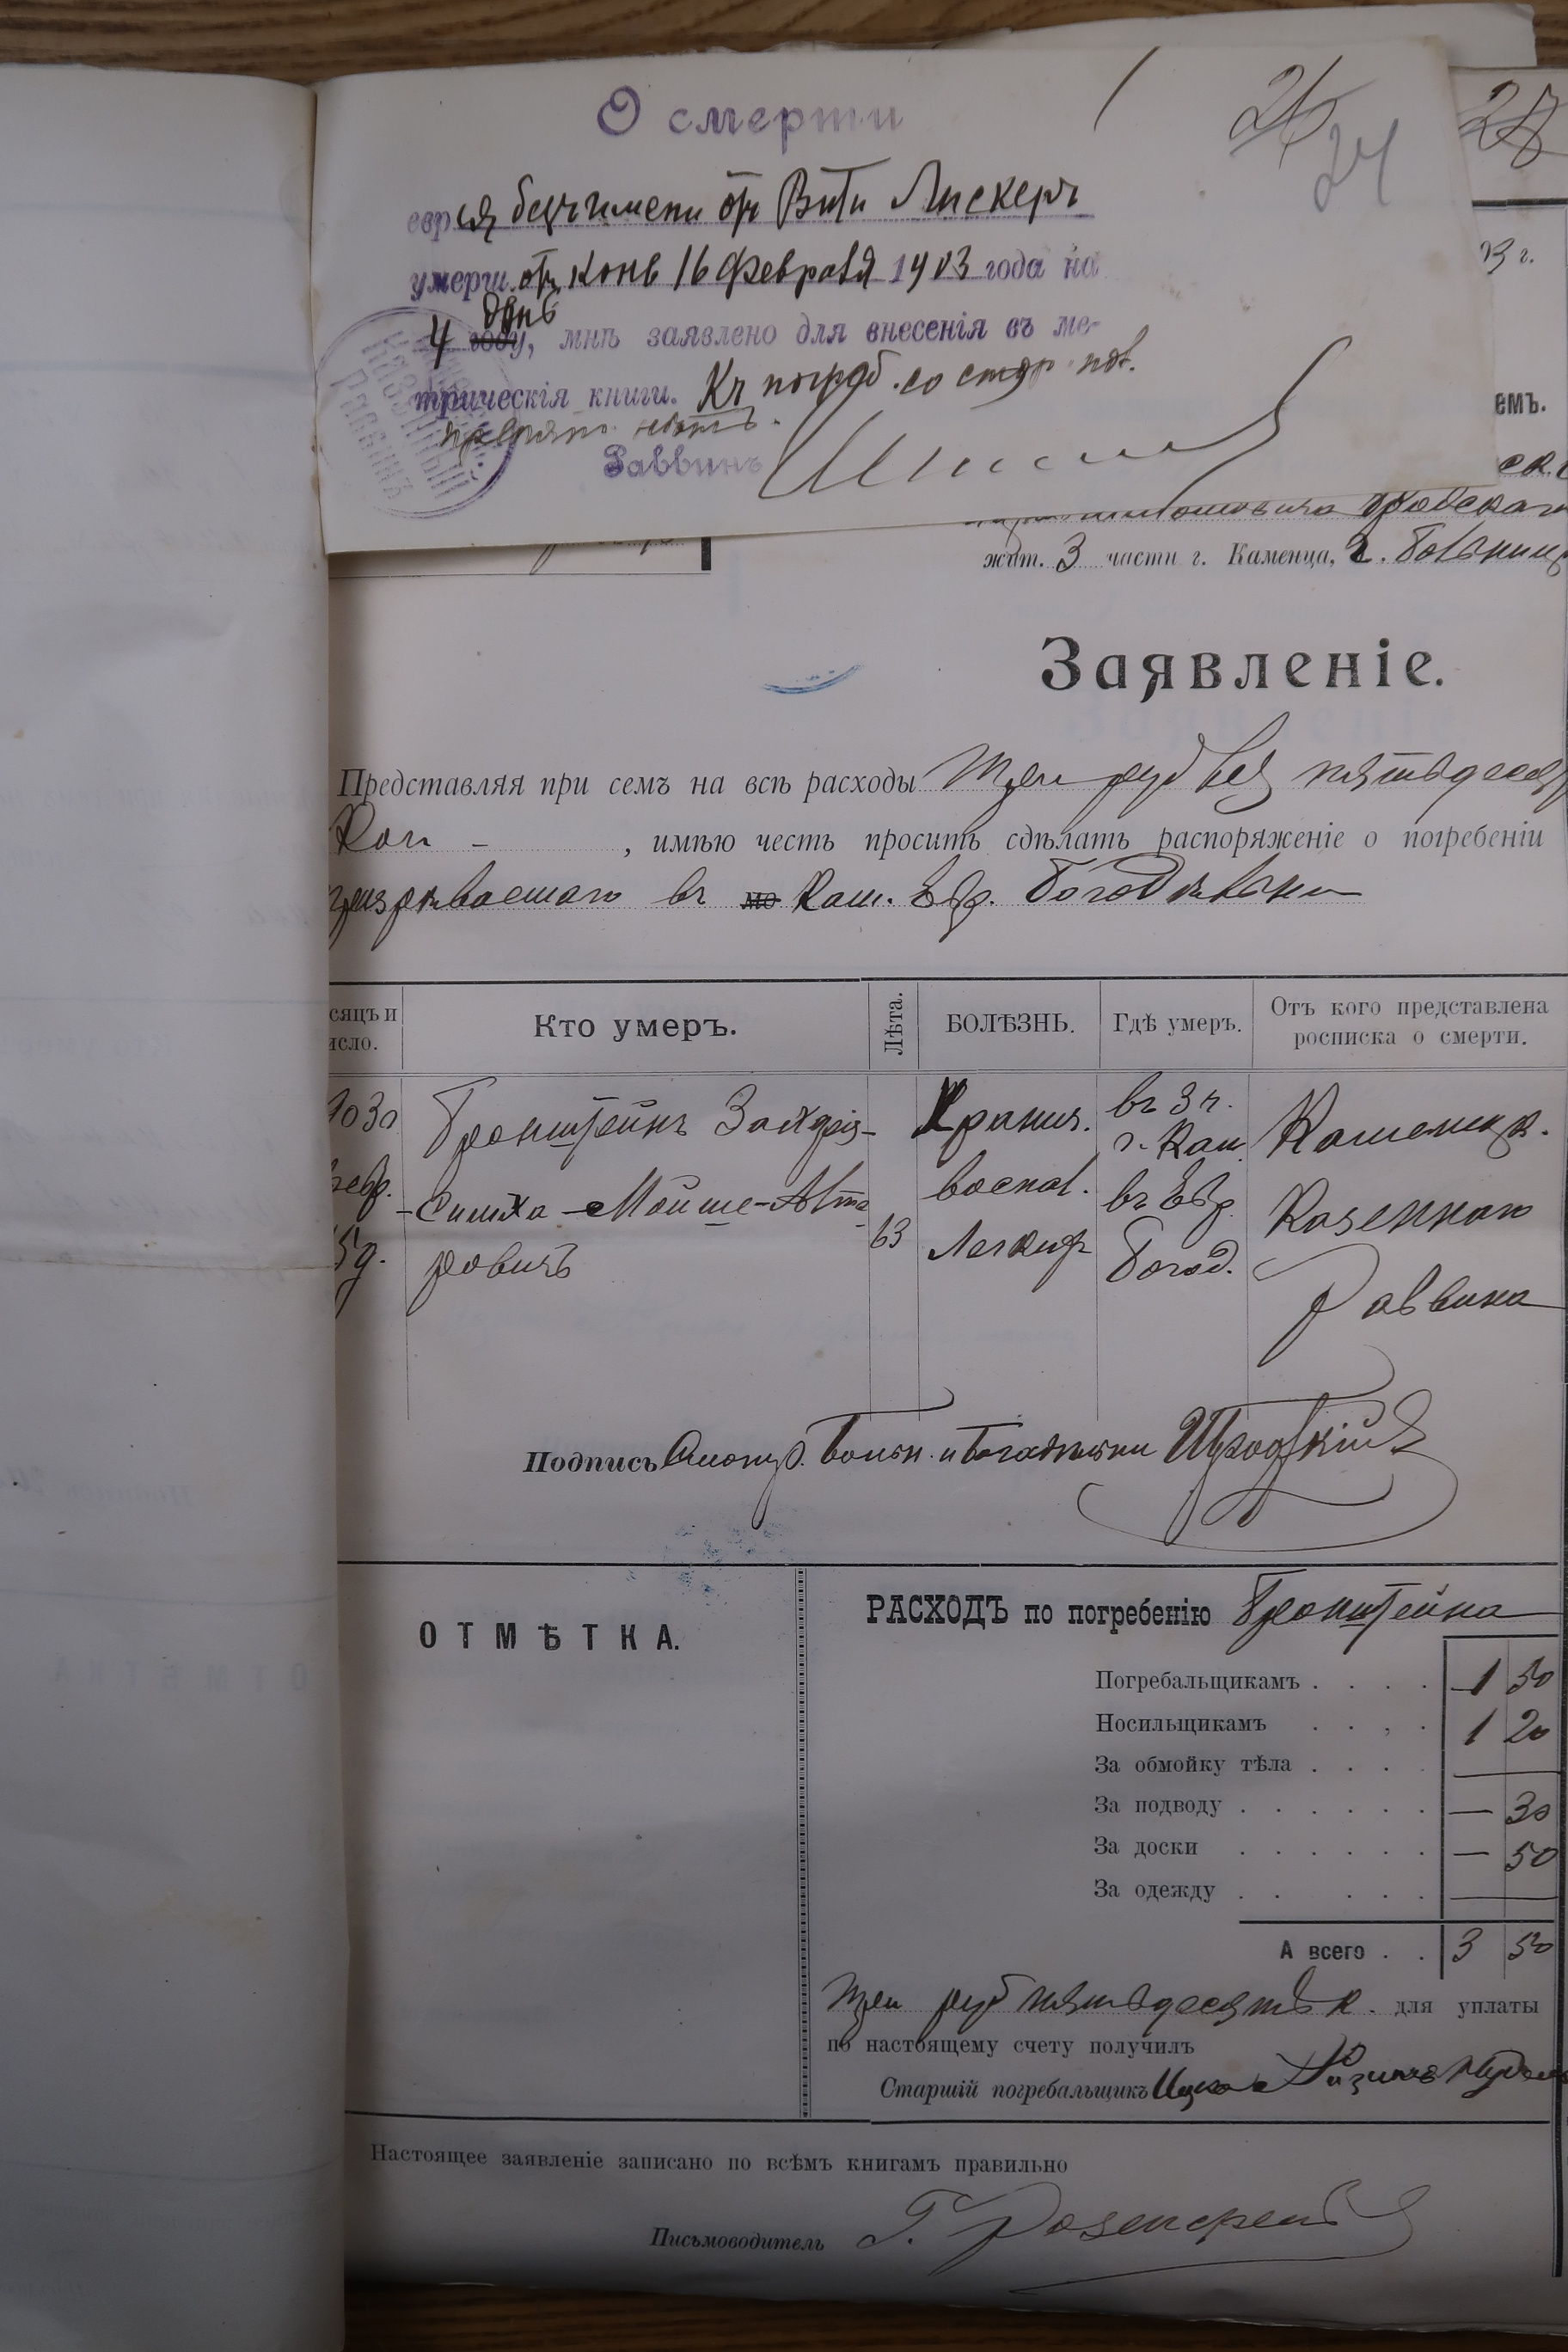 О смерти
26
24
28
евр ея безъ имени отъ Вити Лискеръ
умерш. отъ конв 16 Февраля 1903 года на
4 днѣ году, мнѣ заявлено для внесенія въ ме-
трическія книги. Къ погреб. со стор. пол.
препят. нѣтъ.
Раввинъ
КАЗЕННЫЙ
РАВВИНЪ
3 г.
емъ.
жит. 3 части г. Каменца,
Заявленіе.
Представляя при семъ на всѣ расходы три руб пятьдесят
Коп - , имѣю честь просить сдѣлать распоряженіе о погребеніи
призрѣваемаго въ Кам. Евр. Богодѣльни
сяцъ и
исло.
Кто умеръ.
Лѣта.
БОЛѢЗНЬ.
Гдѣ умеръ.
Отъ кого представлена
росписка о смерти.
903 Бронштейнъ Зайдя- Хронич. въ 3 ч. Каменецк.
г. Кам.
февр. -Симха-Мойше-Альте воспал. въ Евр. Казеннаго
15 д. ровичъ 63 Легкихъ Богод. Раввина
Подпись Смотр. Больн. и Богадѣльни
ОТМѢТКА.
РАСХОДЪ по погребенію Бронштейна
Погребальщикамъ . . . . 1 50
Носильщикамъ . . . . 1 20
За обмойку тѣла . . . . —
За подводу . . . . . . — 30
За доски . . . . . . — 50
За одежду . . . . . —
А всего . . 3 50
три руб пятьдесятъ к. для уплаты
по настоящему счету получилъ
Старшій погребальщикъ
Настоящее заявленіе записано по всѣмъ книгамъ правильно
Письмоводитель Г.